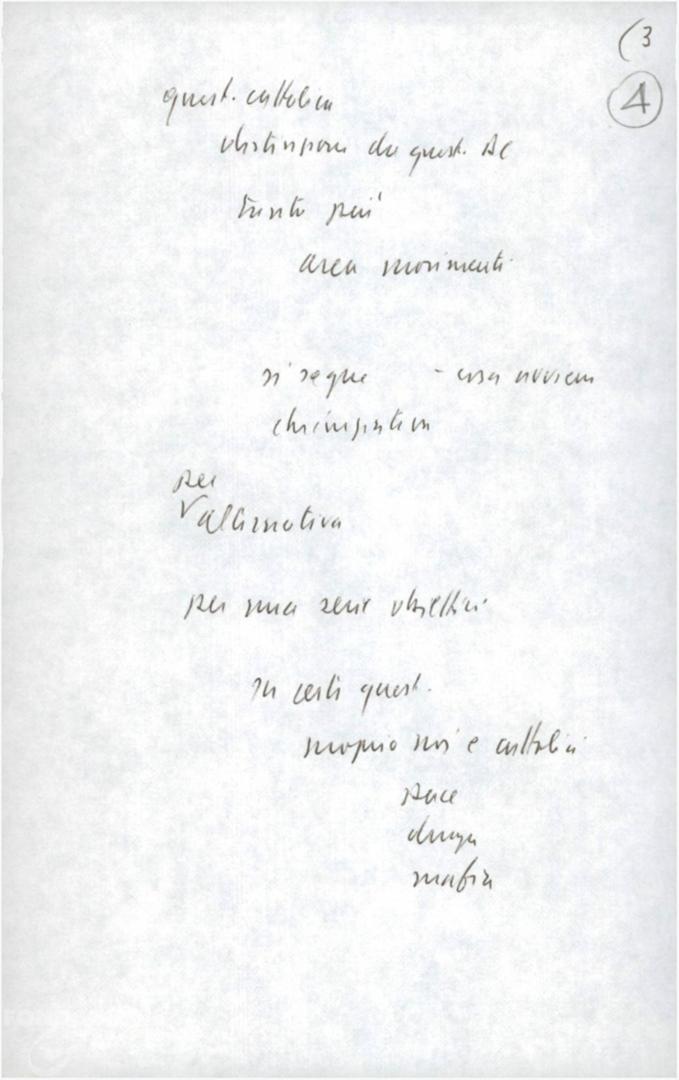 (3
4
quest. cattolica
distinzione da quest. DC
tanto più
area movimenti
si segue - cosa
per
alternativa
per una serie obiettivi
su certi quest.
proprio noi e cattolici
pace
droga
mafia